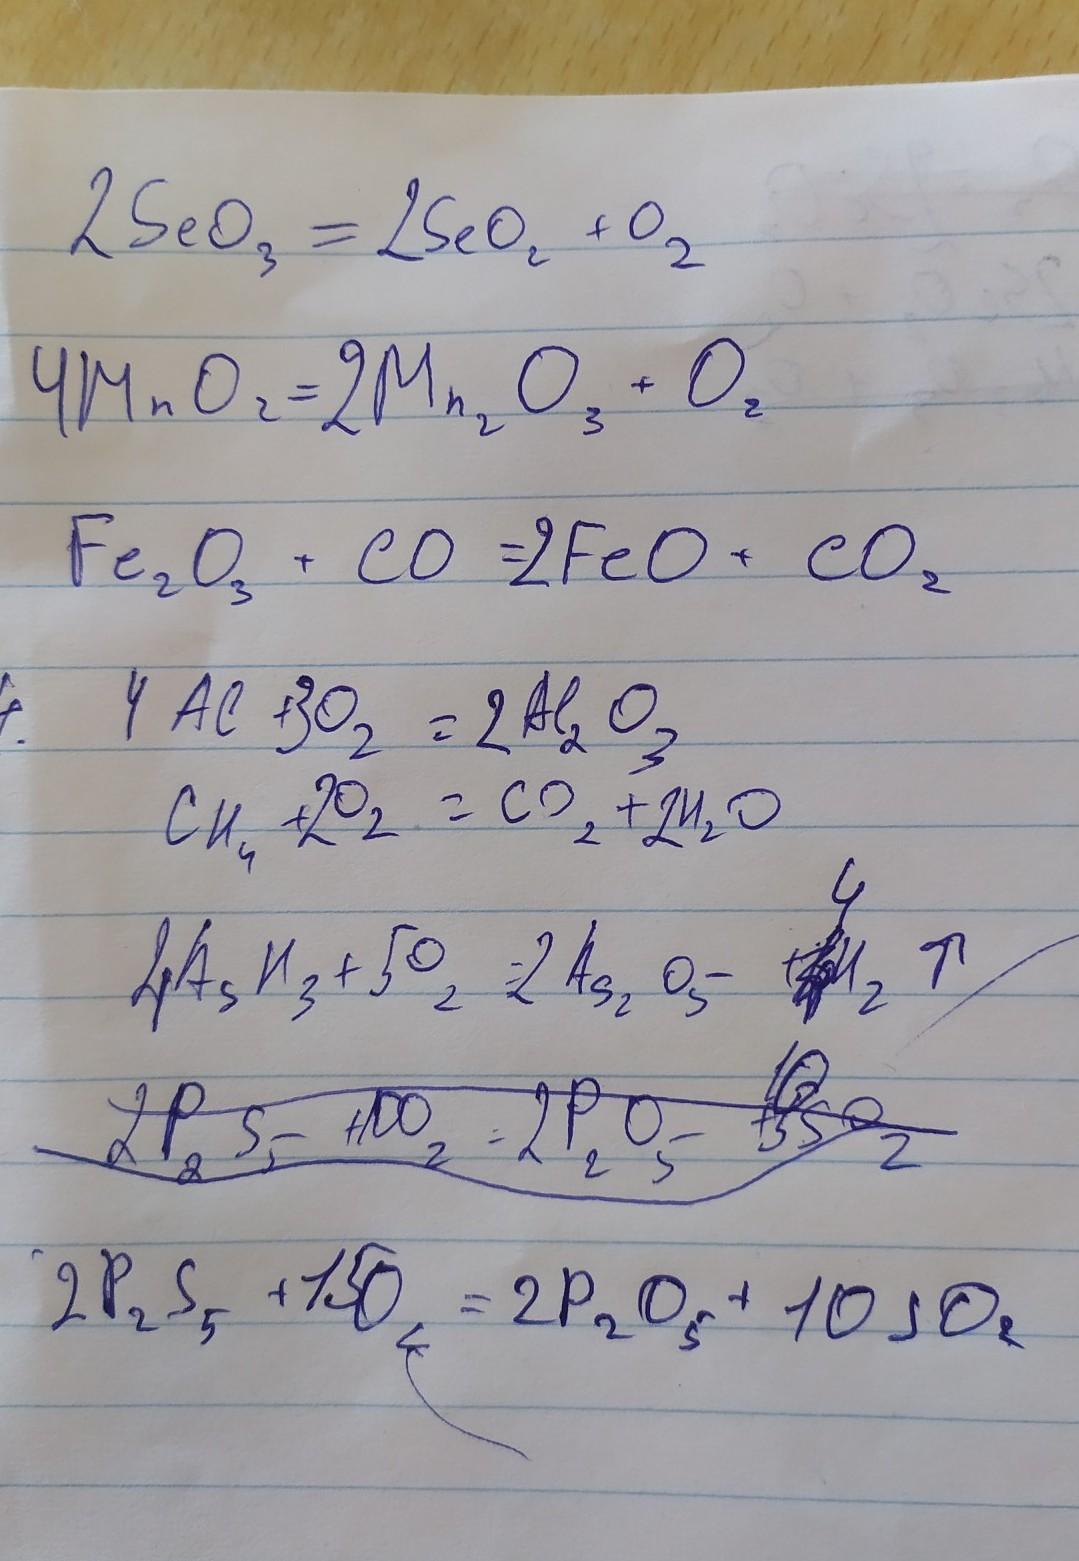 2SeO₃ = 2SeO₂ + O₂
4MnO₂ = 2Mn₂O₃ + O₂
Fe₂O₃ + CO = 2FeO + CO₂
4Al + 3O₂ = 2Al₂O₃
CH₄ + 2O₂ = CO₂ + 2H₂O
4AsH₃ + 5O₂ = 2As₂O₅ + 4H₂ ↑
2P₂S₅ + 10O₂ = 2P₂O₅ + 10SO₂
2P₂S₅ + 15O₂ = 2P₂O₅ + 10SO₂